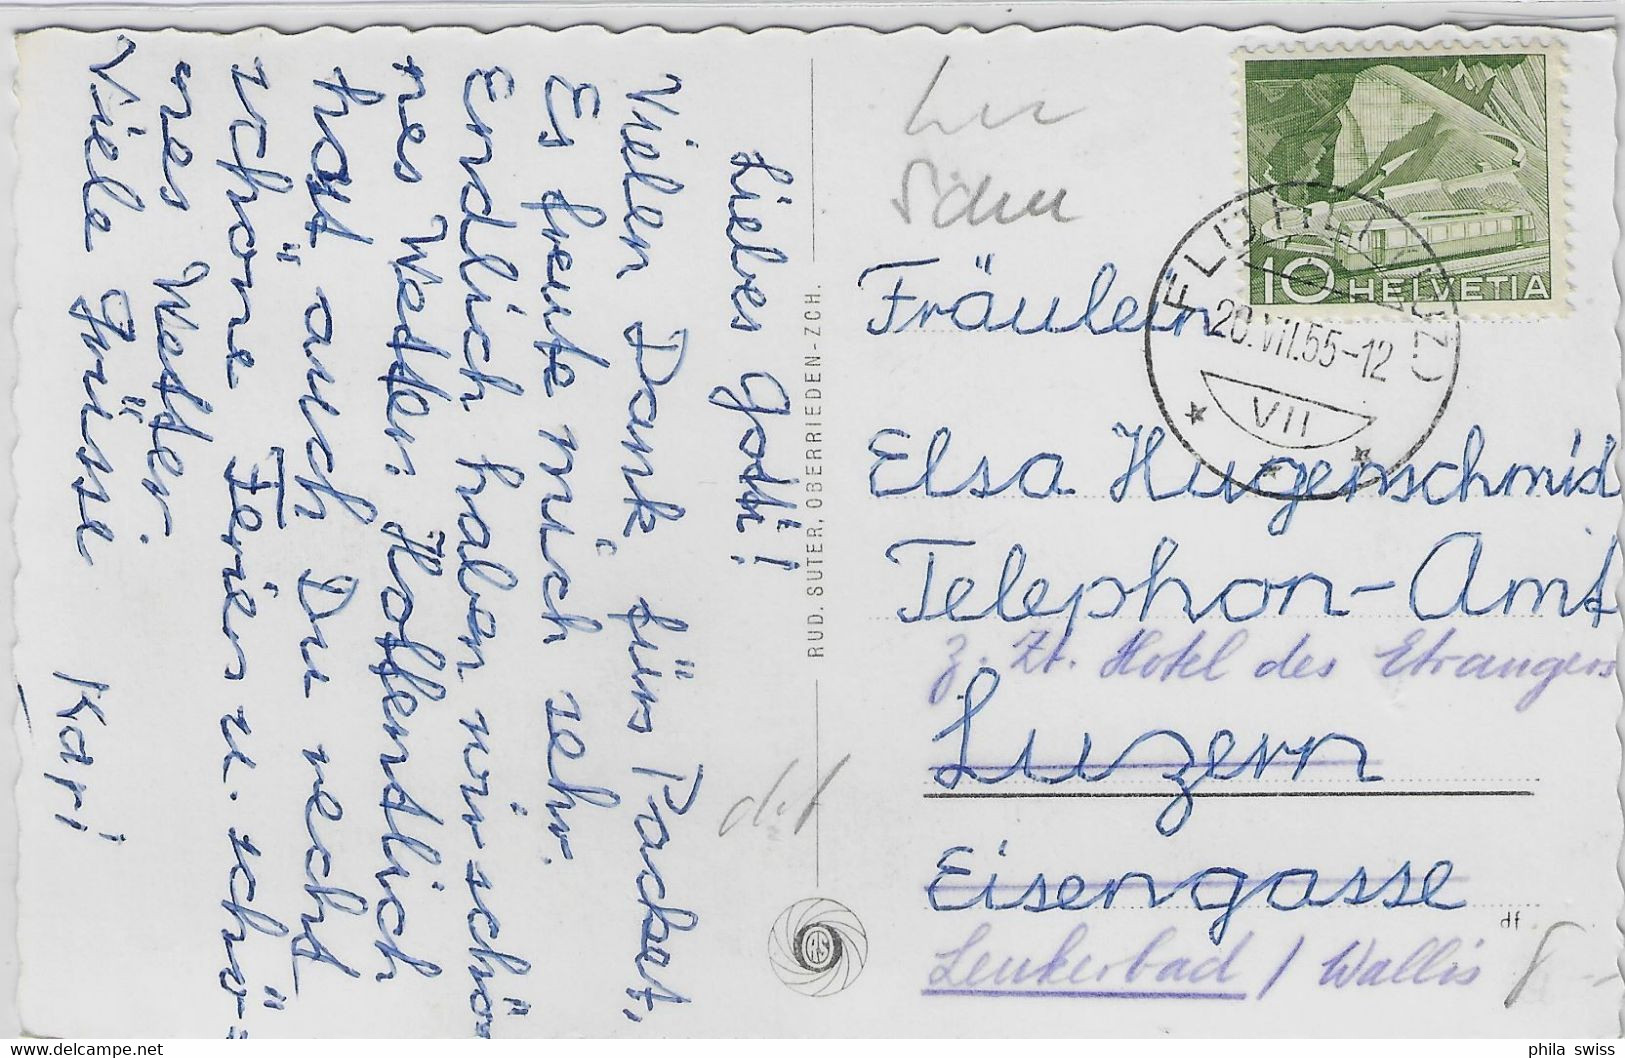 Liebes Gotti!
Vielen Dank fürs Packet,
Es freute mich sehr.
Endlich haben wir schö-
nes Wetter. Hoffentlich
hast auch Du recht
schöne Ferien u. schö-
nes Wetter.
Viele Grüsse
Kari
RUD. SUTER, OBERRIEDEN-ZCH.
10 HELVETIA
20.VII.55-12
VII
Fräulein
Elsa Hugenschmid
Telephon-Amt
z. Zt. Hotel des Etrangers
Luzern
Eisengasse
df
Leukerbad / Wallis
delcampe.net
phila swiss